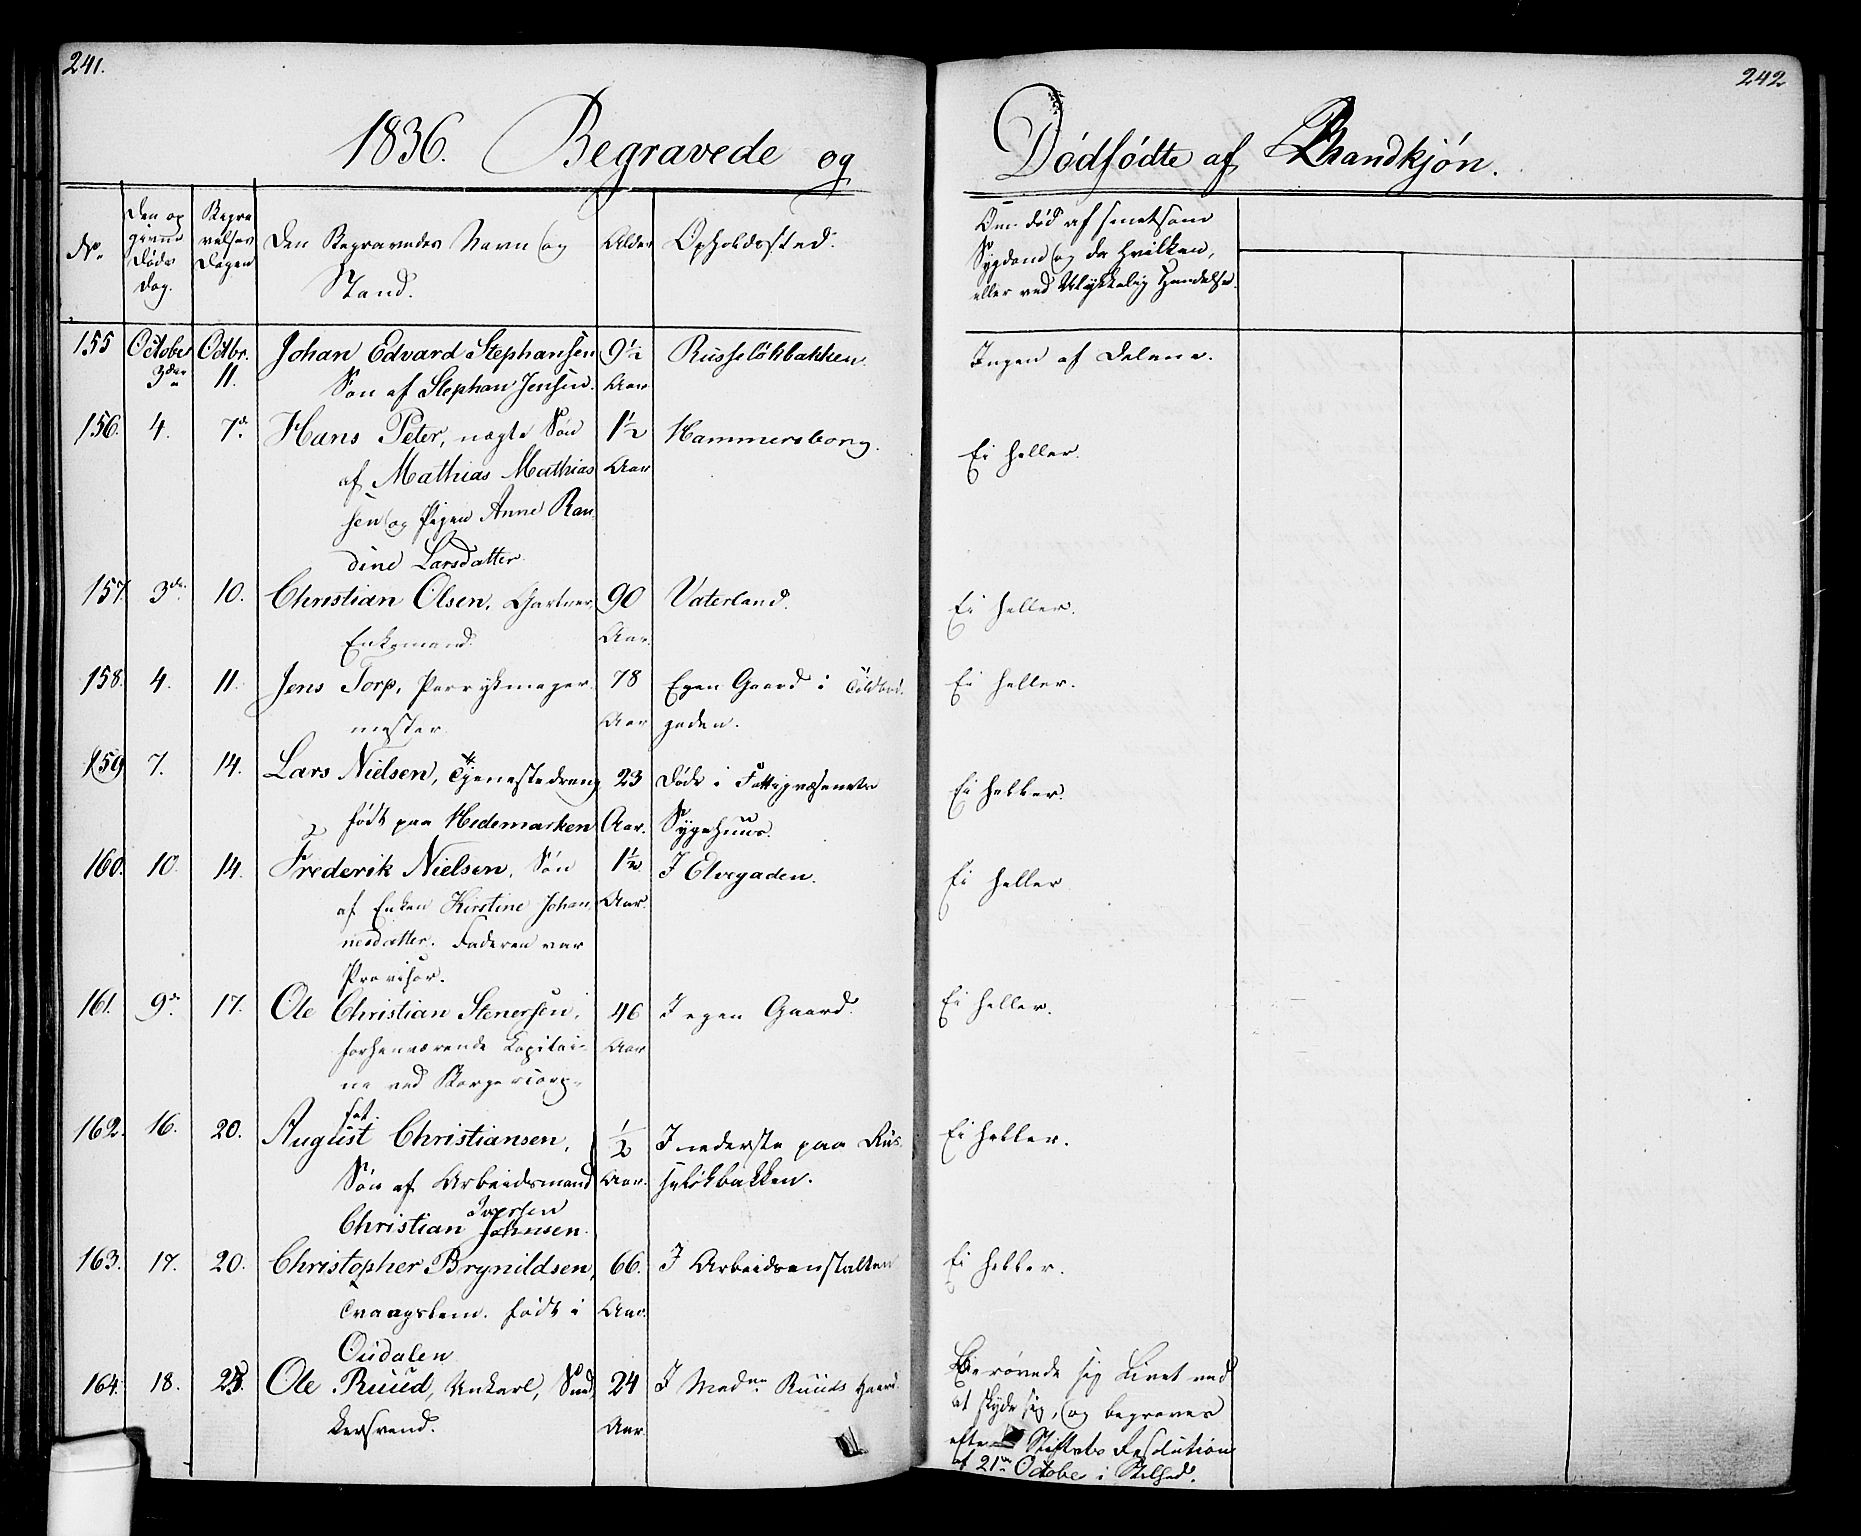 241.
1836. Begravede og
No.
Den op
givne
Døds
dag.
Begra
velses
Dagen
Den Begravedes Navn og
Stand.
Alder
Opholdssted.
155 October Octbr. Johan Edvard Stephansen 9½ Russeløkbakken.
3die 11. Søn af Stephan Jensen. Aar
156. 4. 7de. Hans Peter, uægte Søn 1½ Hammersborg.
af Mathias Mathias Aar
sen og Pigen Anne Ran
dine Larsdatter.
157. 3die. 10. Christian Olsen, Gartner, 90 Vaterland.
Enkemand. Aar.
158. 4. 11. Jens Torp, Perrykmager 78 Egen Gaard i Toldbod
mester Aar gaden.
159 7. 14. Lars Nielsen, Tjenestedreng 23 Døde i Fattigvæsenets
født paa Hedemarken Aar. Sygehuus.
160. 10. 14. Frederik Nielsen, Søn 1½ I Elvegaden.
af Enken Kirstine Johan Aar.
nesdatter. Faderen var
Provisor.
161. 9de. 17. Ole Christian Stenersen, 46 I egen Gaard.
forhenværende Capitai- Aar
ne ved Borgercorp-
set.
162. 16. 20. August Christiansen, ½ I nederste paa Rus
Søn af Arbeidsmand Aar. seløkbakken.
Iversen
Christian Johnsen.
163. 17. 20. Christopher Brynildsen, 66. I Arbeidsanstalten
født i Aar.
Oudalen
164. 18. 23. Ole Ruud, Unkarl, Sned 24 I Madme Ruuds Gaard.
kersvend. Aar.
242
Dødfødte af Mandkjøn.
Om død af smitsom
Sygdom og da hvilken,
eller ved Ulykkelig Hændelse.
Ingen af Delene.
Ei heller.
Ei heller.
Ei heller.
Ei heller.
Ei heller
Ei heller.
Ei heller.
Ei heller.
Berøvede sig Livet ved
at skyde sig, og begraves
efter Stiftets Resolution
af 21de October i Stilhed.